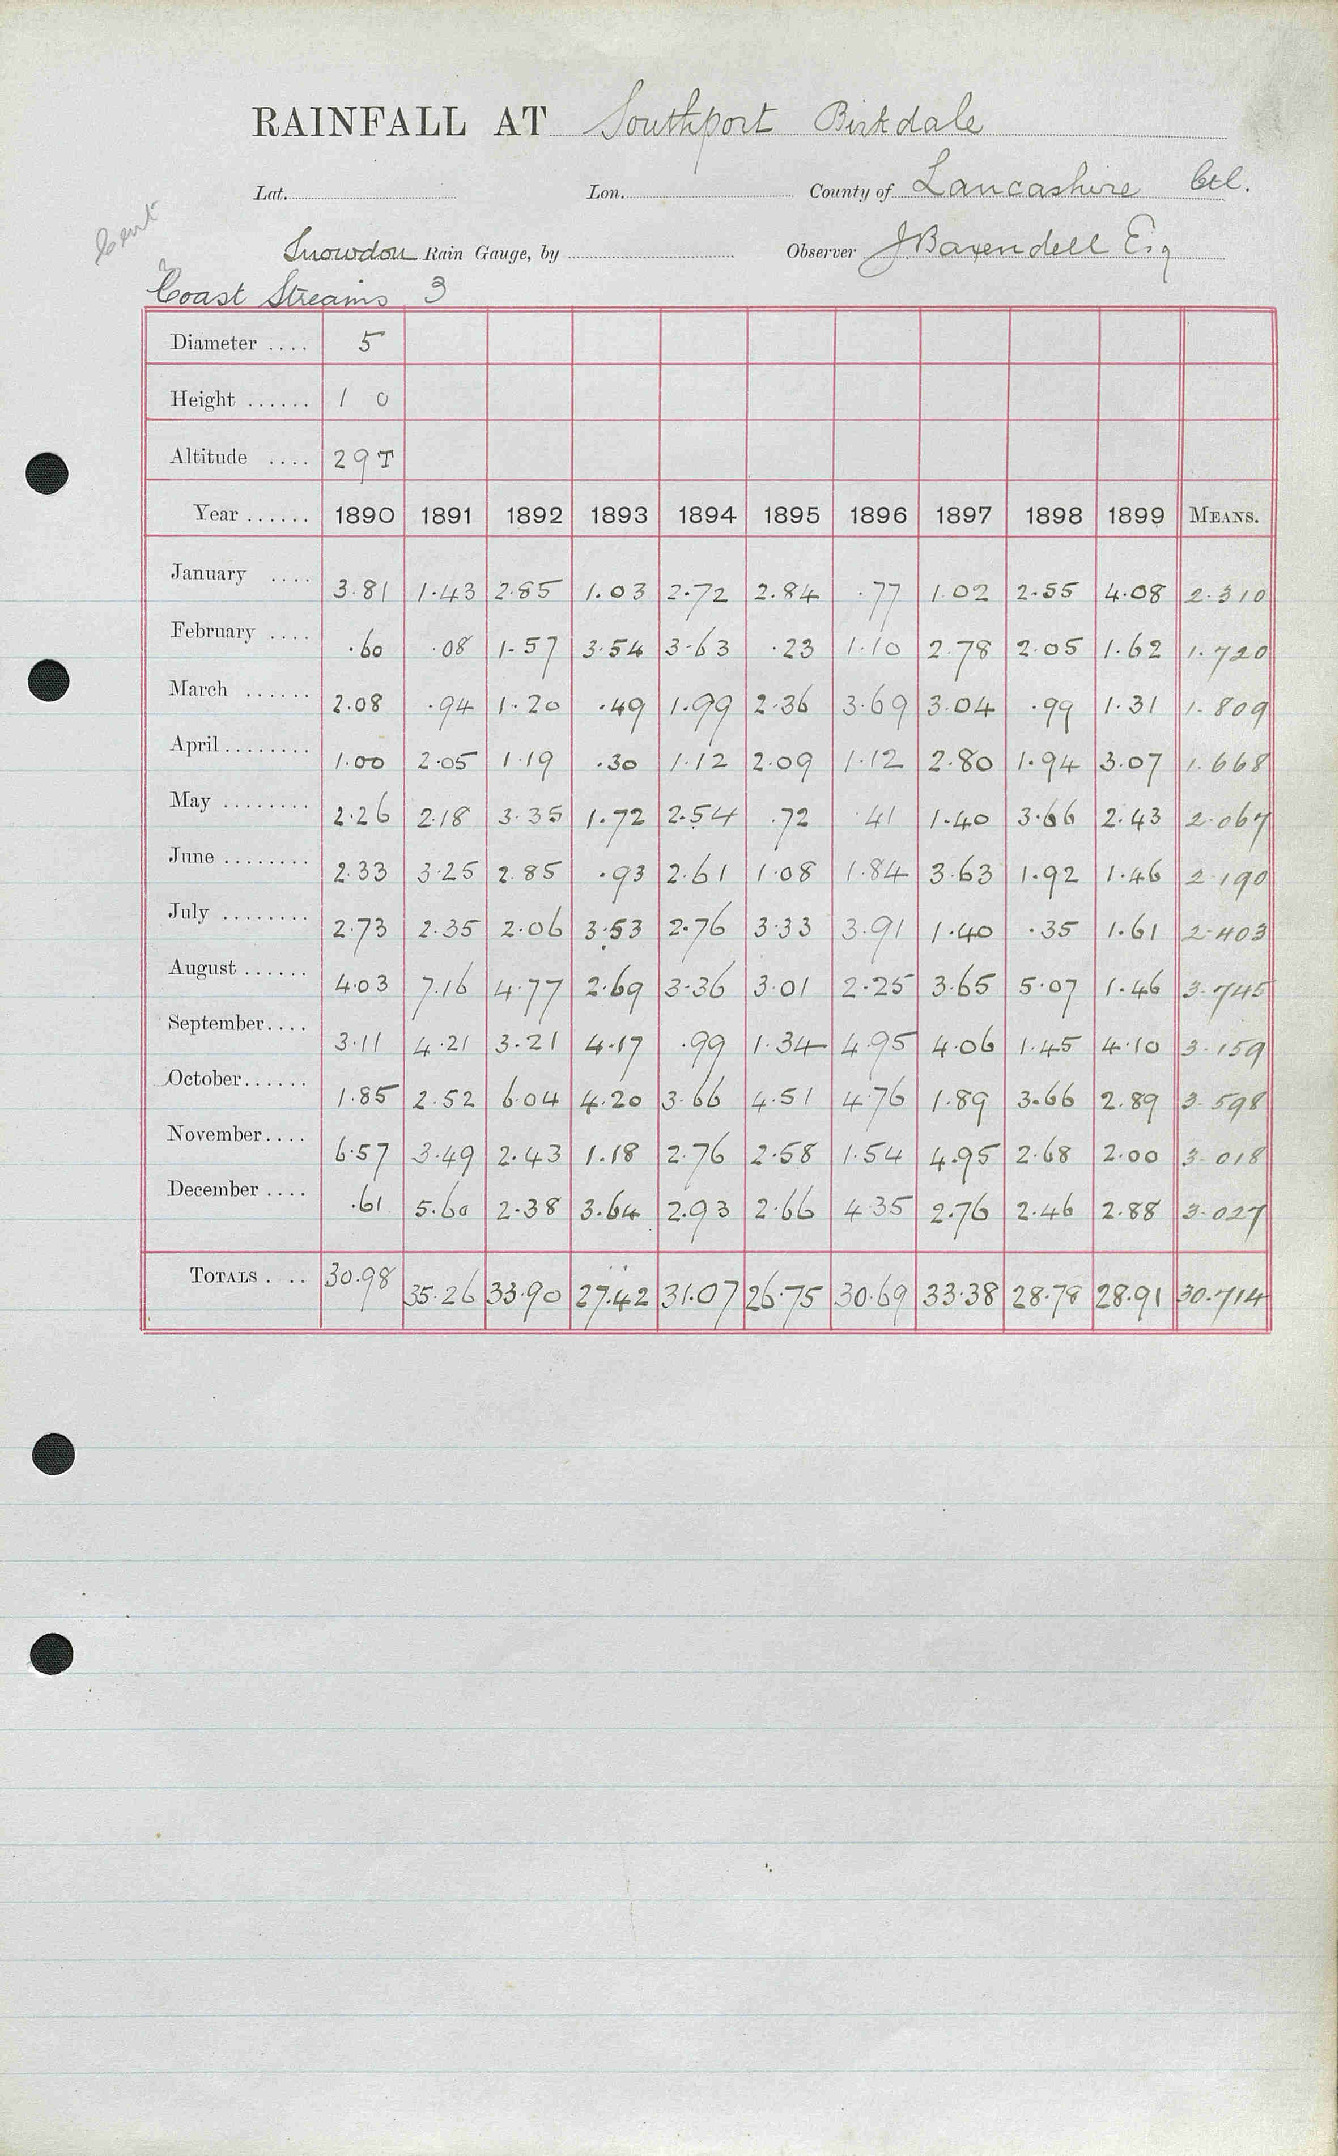 RAINFALL AT Southport Birkdale
Lat. Lon. County of Lancashire Ctl.
Cent
Snowdon Rain Gauge, by Observer J Baxendell Esq
Coast Streams 3
Diameter .... 5
Height ...... 1 0
Altitude .... 29 T
Year ...... 1890 1891 1892 1893 1894 1895 1896 1897 1898 1899 MEANS.
January .... 3.81 1.43 2.85 1.03 2.72 2.84 .77 1.02 2.55 4.08 2.310
February .... .60 .08 1.57 3.54 3.63 .23 1.10 2.78 2.05 1.62 1.720
March ...... 2.08 .94 1.20 .49 1.99 2.36 3.69 3.04 .99 1.31 1.809
April ........ 1.00 2.05 1.19 .30 1.12 2.09 1.12 2.80 1.94 3.07 1.668
May ........ 2.26 2.18 3.35 1.72 2.54 .72 .41 1.40 3.66 2.43 2.067
June ........ 2.33 3.25 2.85 .93 2.61 1.08 1.84 3.63 1.92 1.46 2.190
July ........ 2.73 2.35 2.06 3.53 2.76 3.33 3.91 1.40 .35 1.61 2.403
August ...... 4.03 7.16 4.77 2.69 3.36 3.01 2.25 3.65 5.07 1.46 3.745
September.... 3.11 4.21 3.21 4.17 .99 1.34 4.95 4.06 1.45 4.10 3.159
October...... 1.85 2.52 6.04 4.20 3.66 4.51 4.76 1.89 3.66 2.89 3.598
November.... 6.57 3.49 2.43 1.18 2.76 2.58 1.54 4.95 2.68 2.00 3.018
December .... .61 5.60 2.38 3.64 2.93 2.66 4.35 2.76 2.46 2.88 3.027
TOTALS . .. 30.98 35.26 33.90 27.42 31.07 26.75 30.69 33.38 28.78 28.91 30.714